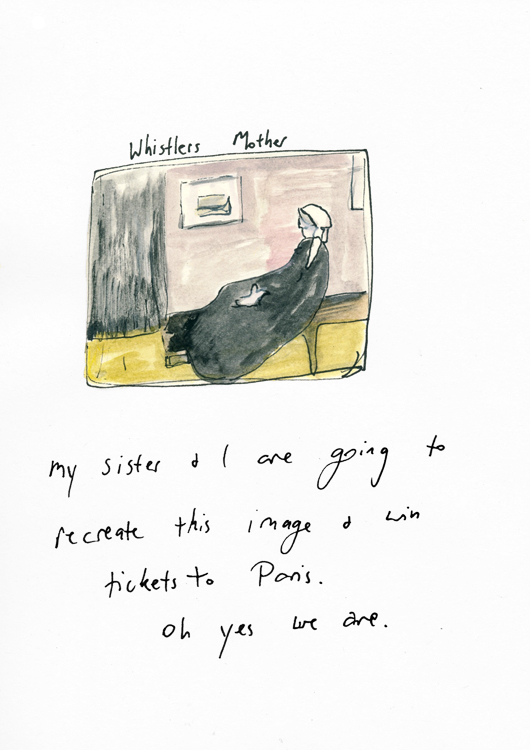 Whistlers Mother
my sister & I are going to
recreate this image & win
tickets to Paris.
Oh yes we are.